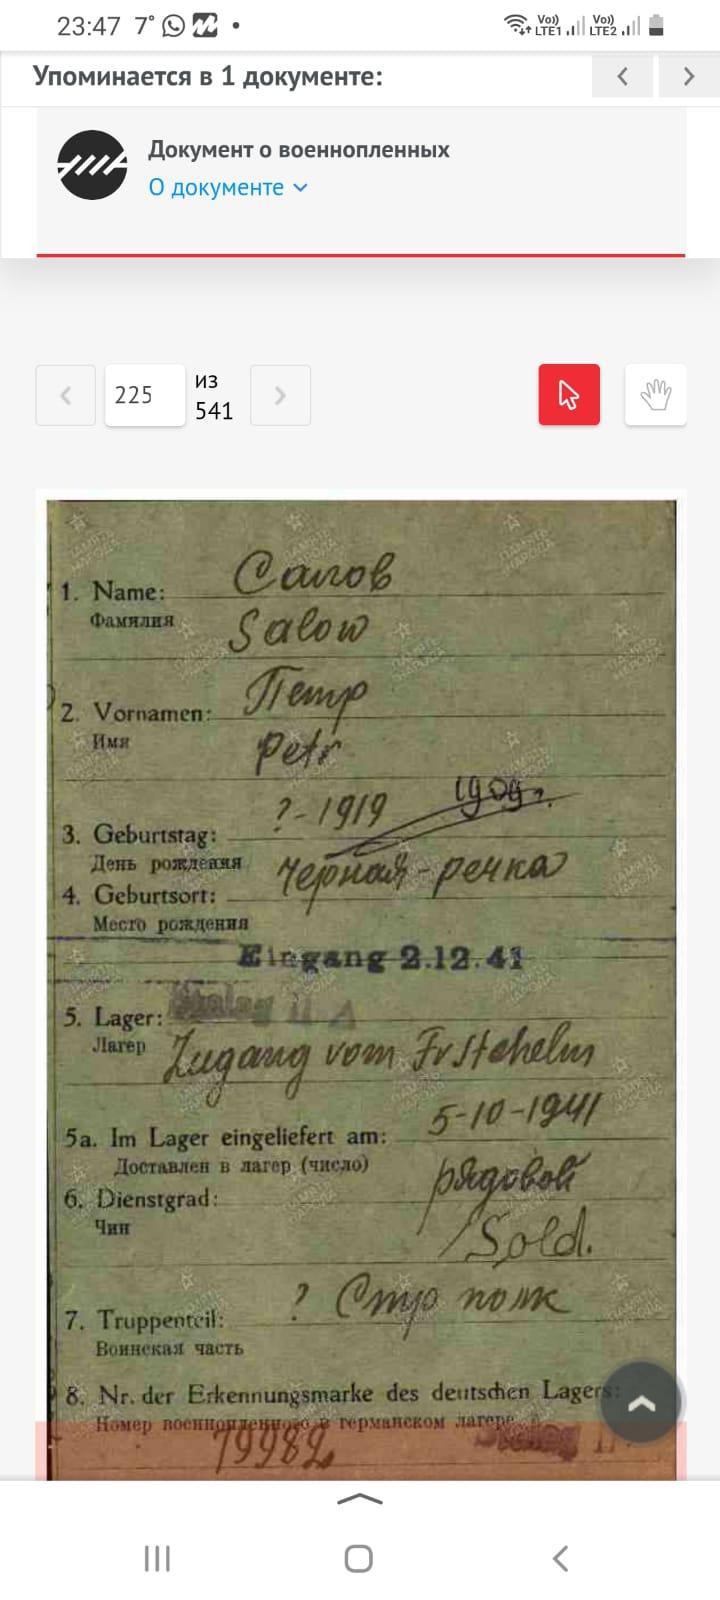 23:47 7°
Vo)) LTE1 Vo)) LTE2
Упоминается в 1 документе:
Документ о военнопленных
О документе
225 из 541
Салов
1. Name:
Фамилия
Salow
Петр
2. Vornamen:
Имя
Petr
?-1919 1909 г.
3. Geburtstag:
День рождения
Черная-речка
4. Geburtsort:
Место рождения
Eingang 2.12.41
5. Lager: Stalag II A
Лагер
Zugang vom
5-10-1941
5a. Im Lager eingeliefert am:
Доставлен в лагер (число)
рядовой
6. Dienstgrad:
Чин
Sold.
? Стр полк
7. Truppenteil:
Воинская часть
8. Nr. der Erkennungsmarke des deutschen Lagers:
Номер военнопленного в германском лагере
79982 Stalag
ПАМЯТЬ НАРОДА